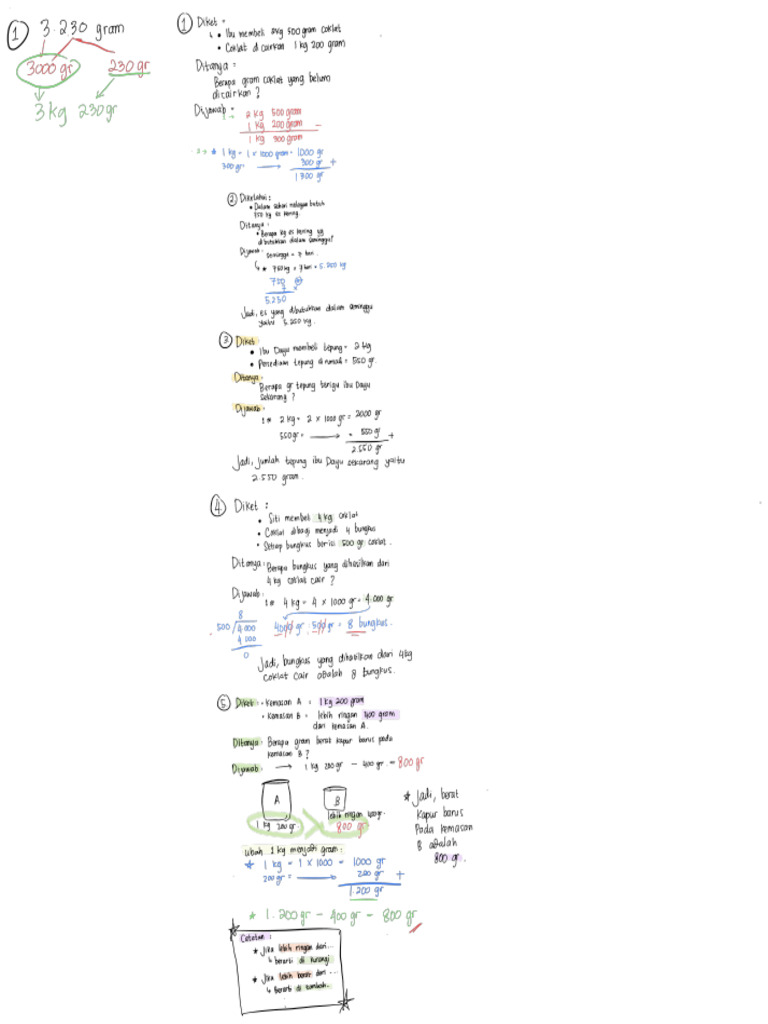 1 3.230 gram
3000 gr 230 gr
3 kg 230 gr
1 Diket =
• Ibu membeli 2kg 500 gram coklat
• Coklat dicairkan 1 kg 200 gram
Ditanya =
Berapa gram coklat yang belum
dicairkan ?
Dijawab =
2 kg 500 gram
1 kg 200 gram -
1 kg 300 gram
* 1 kg = 1 x 1000 gram = 1000 gr
300 gr → 300 gr +
1300 gr
2 Diketahui :
• Dalam sehari nelayan butuh
750 kg es kering.
Ditanya :
• Berapa kg es kering yg
dibutuhkan dalam seminggu?
Dijawab :
Seminggu = 7 hari.
* 750 kg x 7 hari = 5.250 kg
750
7 x
5.250
Jadi, es yang dibutuhkan dalam seminggu
yaitu 5.250 kg.
3 Diket
• Ibu Dayu membeli tepung = 2 kg
• Persediaan tepung di rumah = 550 gr.
Ditanya :
Berapa gr tepung terigu ibu Dayu
sekarang ?
Dijawab :
2 kg = 2 x 1000 gr = 2000 gr
550 gr = → = 550 gr +
2.550 gr
Jadi, jumlah tepung ibu Dayu sekarang yaitu
2.550 gram.
4 Diket :
• Siti membeli 4 kg coklat
• Coklat dibagi menjadi 4 bungkus
• Setiap bungkus berisi 500 gr coklat.
Ditanya : Berapa bungkus yang dihasilkan dari
4 kg coklat cair ?
Dijawab :
4 kg = 4 x 1000 gr = 4.000 gr
8
500 / 4.000
4000
0
4000 gr : 500 gr = 8 bungkus.
Jadi, bungkus yang dihasilkan dari 4kg
coklat cair adalah 8 bungkus.
5 Diket : - Kemasan A = 1 kg 200 gram
- Kemasan B = lebih ringan 400 gram
dari kemasan A.
Ditanya : Berapa gram berat kapur barus pada
kemasan B ?
Dijawab : → 1 kg 200 gr - 400 gr = 800 gr
A B
lebih ringan 400gr.
1 kg 200 gr. 800 gr
* Jadi, berat
kapur barus
pada kemasan
B adalah
800 gr.
Ubah 1 kg menjadi gram :
* 1 kg = 1 x 1000 = 1000 gr
200 gr = → 200 gr +
1.200 gr
* 1.200 gr - 400 gr = 800 gr
Catatan :
* Jika lebih ringan dari...
↳ berarti di kurangi
* Jika lebih berat dari ...
↳ berarti di tambah.